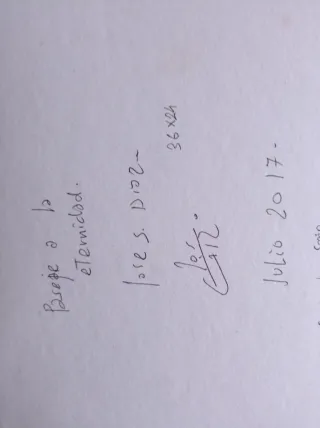 Pasaje a la
eternidad.
Jose S. Diaz
36x24
Julio 2017.